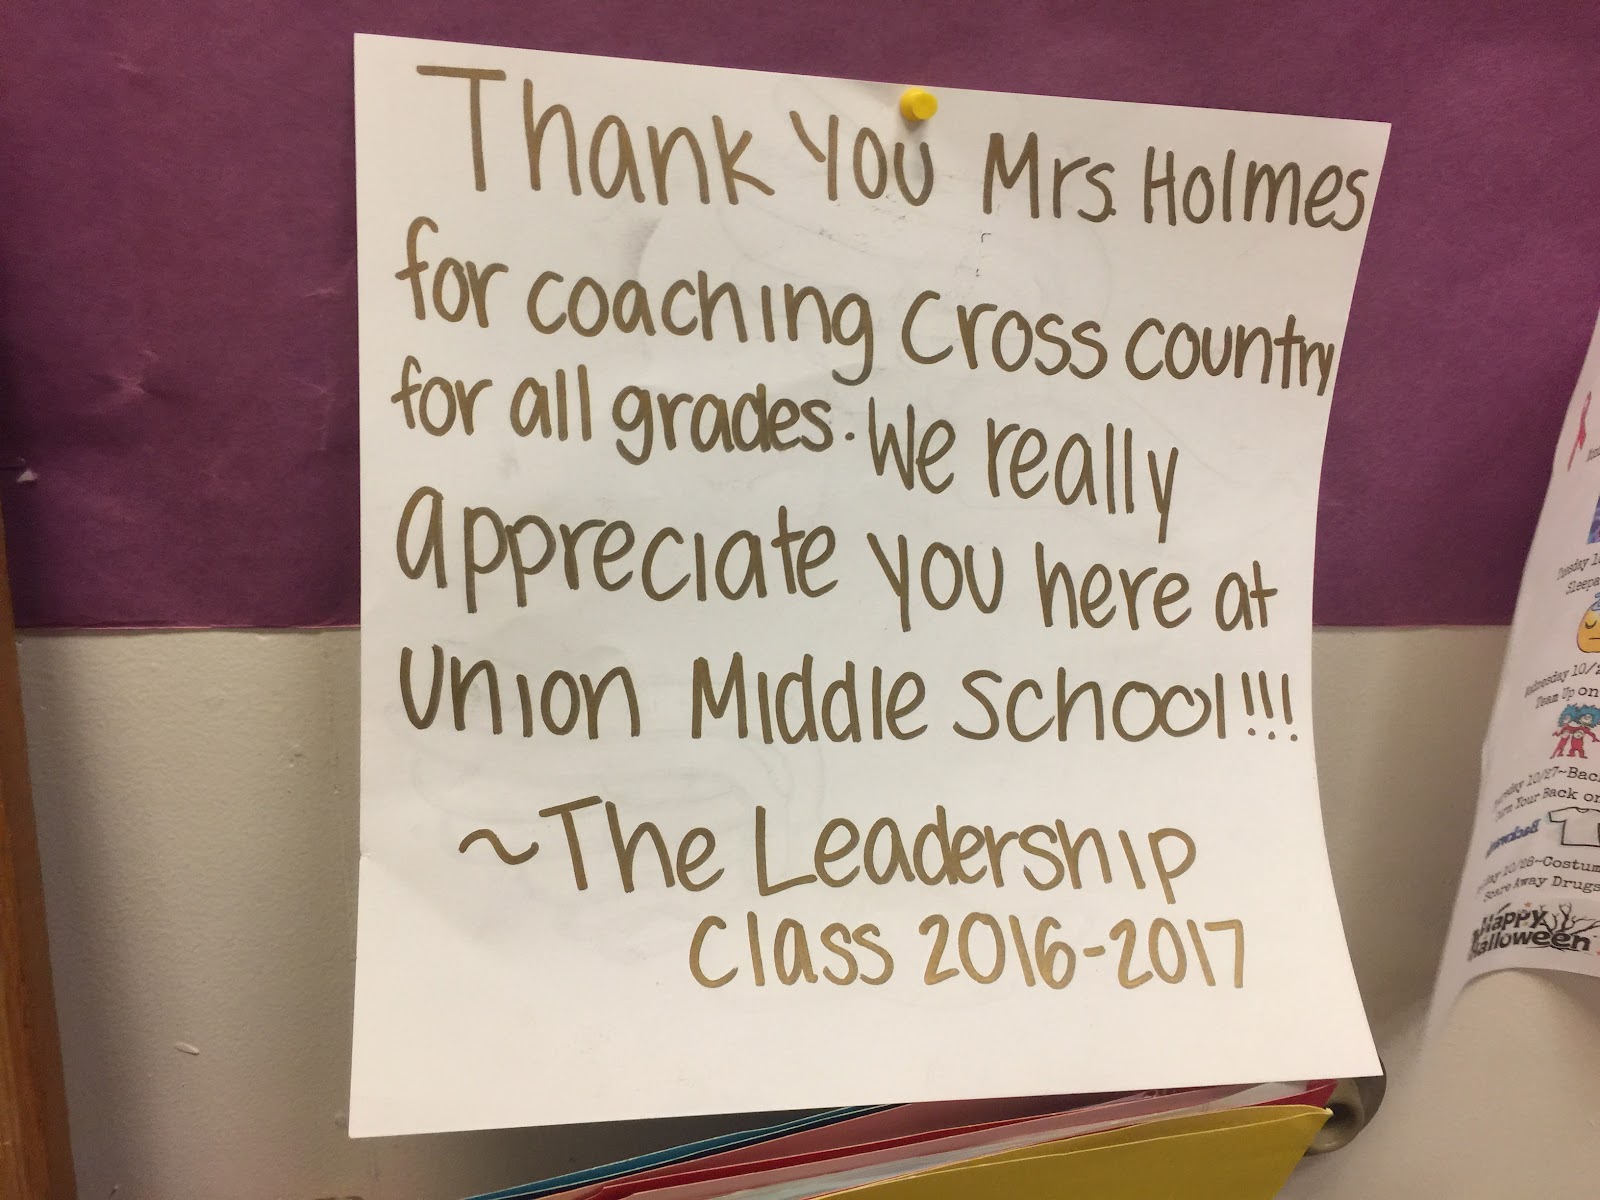 Thank You Mrs. Holmes
for coaching Cross country
for all grades. We really
appreciate you here at
Union Middle School!!!
~The Leadership
Class 2016-2017
Tuesday
Team Up on
10/27~Bac
Your Back on
10/28~Costum
Scare Away Drugs
Happy
Halloween